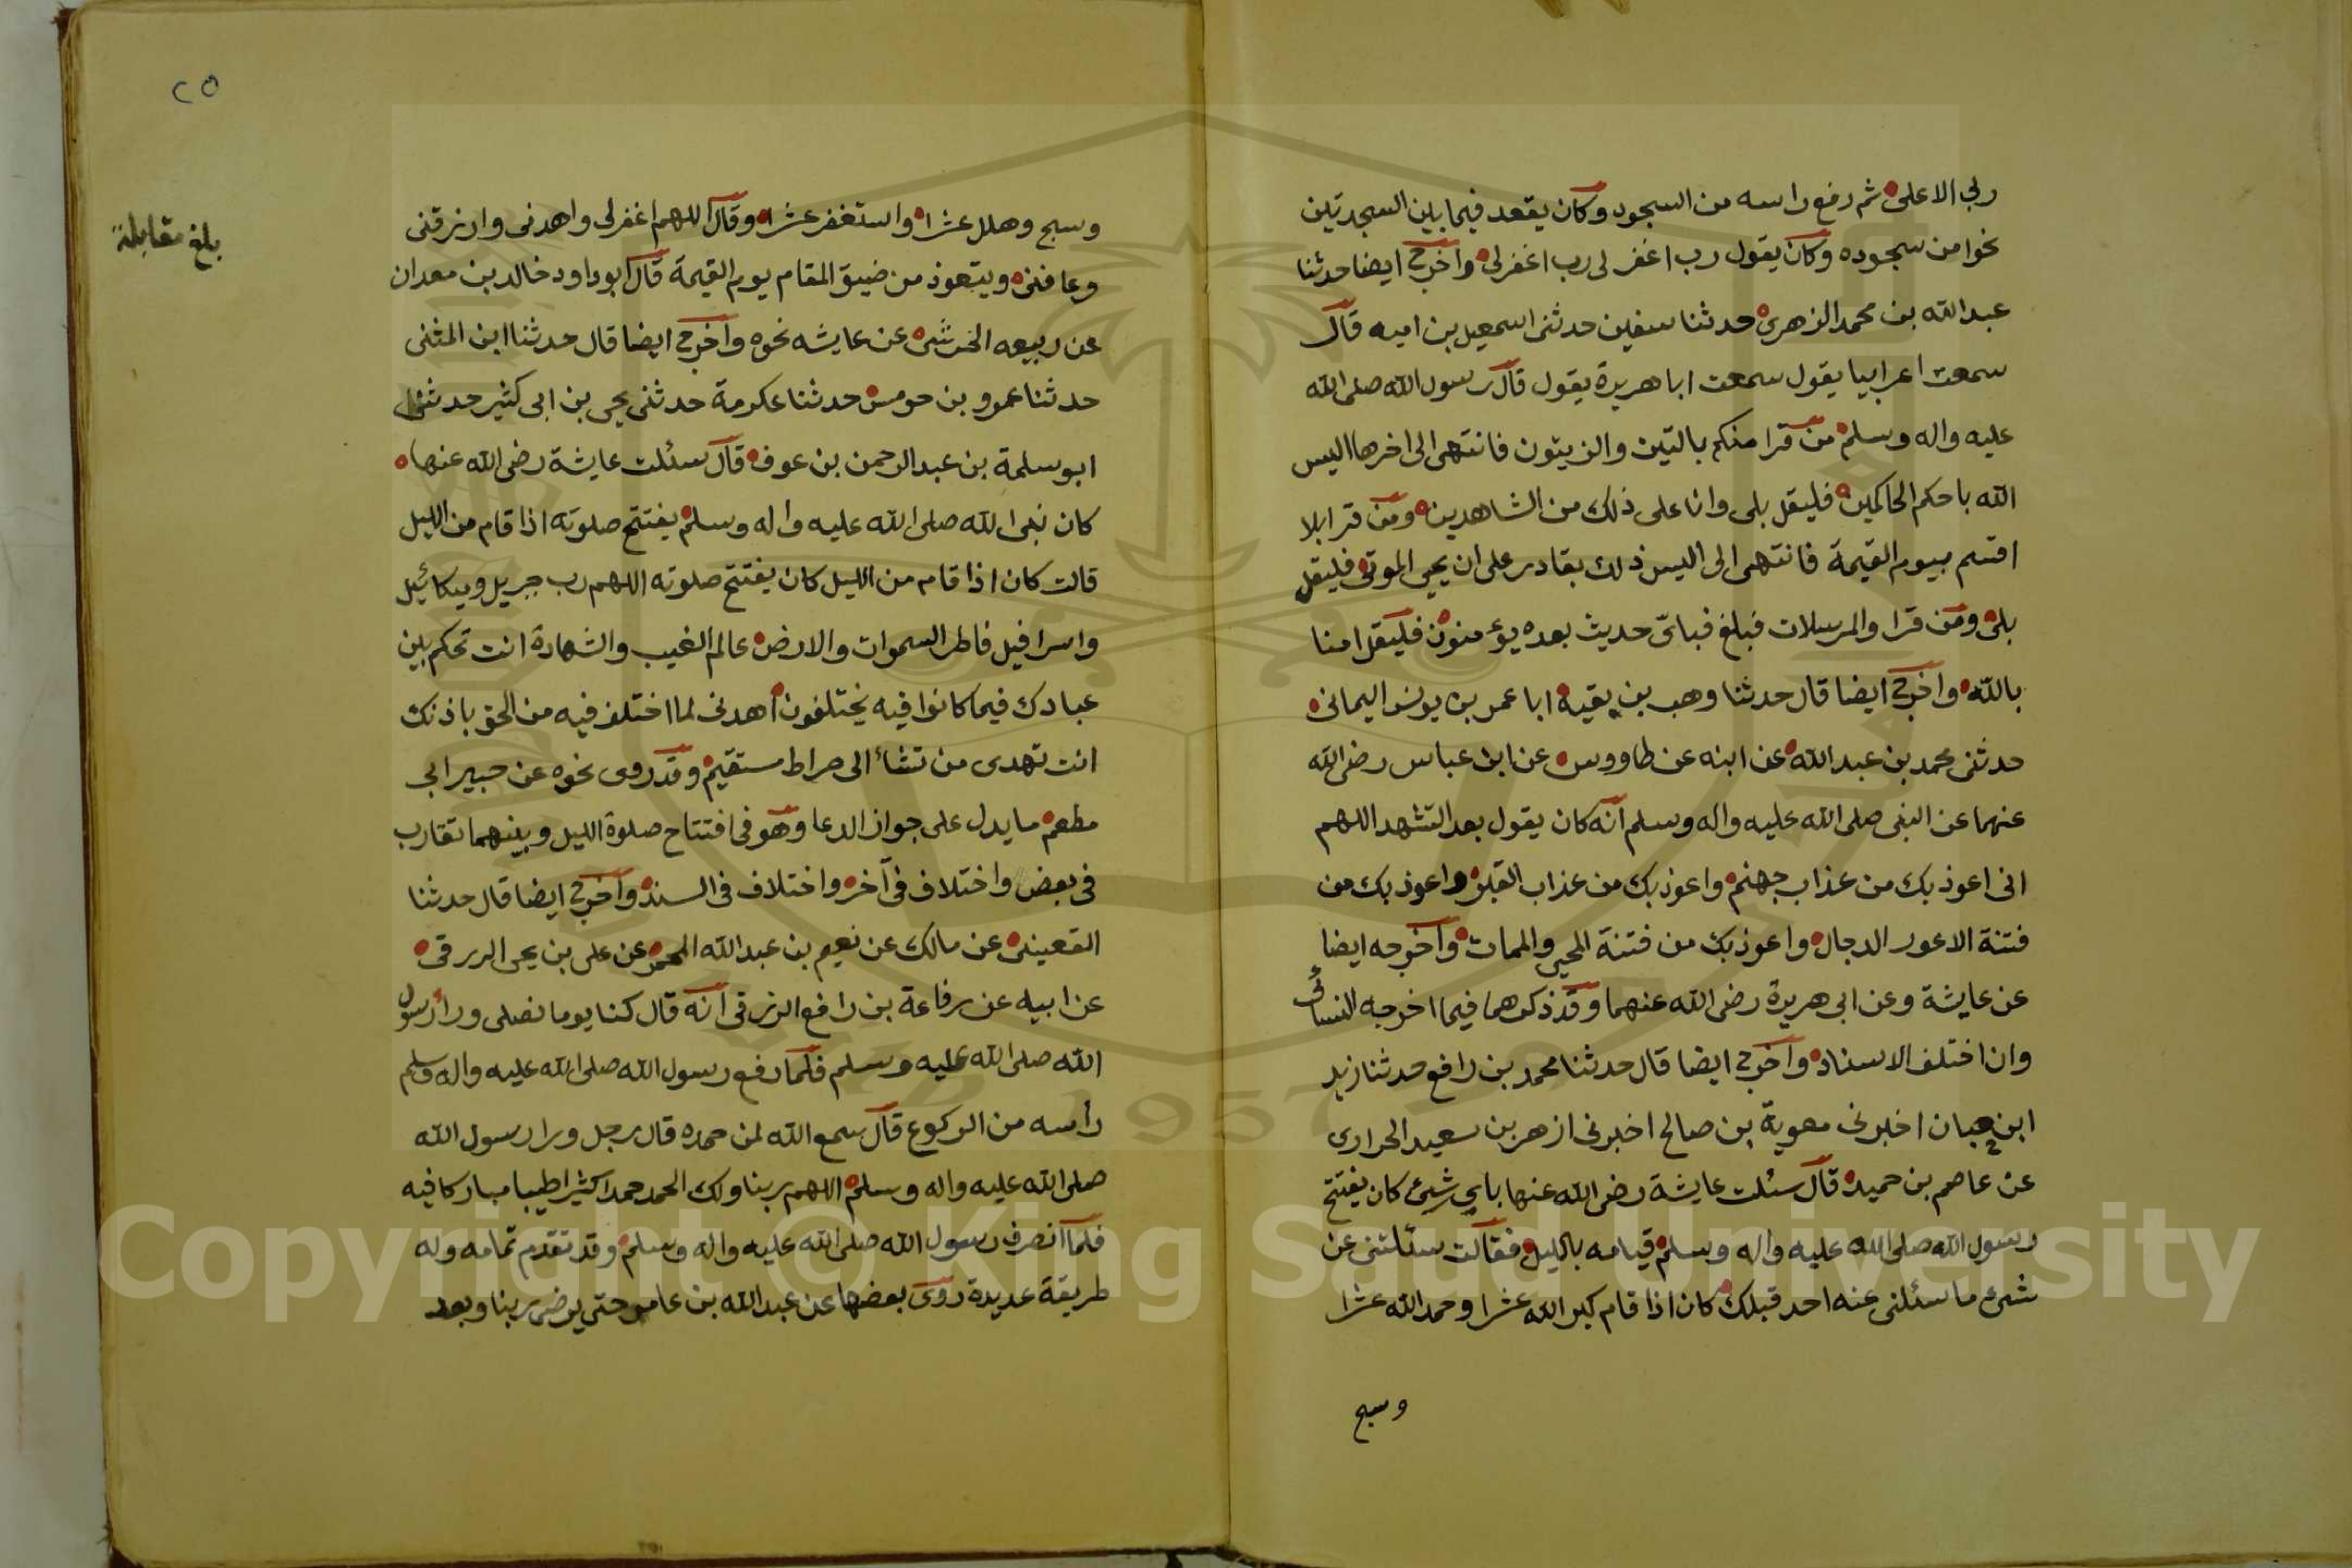 ربي الاعلى ثم رفع راسه من السجود وكان يقعد فيما بين السجدتين
نحوا من سجوده وكان يقول رب اغفر لى رب اغفر لى واخرج ايضا حدثنا
عبد الله بن محمد الزهرى حدثنا سفين حدثنى اسمعيل بن اميه قال
سمعت اعرابيا يقول سمعت ابا هريرة يقول قال رسول الله صلى الله
عليه واله وسلم من قرا منكم بالتين والزيتون فانتهى الى اخرها اليس
الله باحكم الحاكمين فليقل بلى وانا على ذلك من الشاهدين ومن قرا بلا
اقسم بيوم القيمة فانتهى الى اليس ذلك بقادر على ان يحيى الموتى فليقل
بلى ومن قرا والمرسلات فبلغ فباىّ حديث بعده يؤمنون فليقل امنا
بالله واخرج ايضا قال حدثنا وهب بن بقية ابا عمر بن يونس اليمانى
حدثنى محمد بن عبد الله عن ابنه عن طاووس عن ابن عباس رضى الله
عنهما عن النبى صلى الله عليه واله وسلم انه كان يقول بعد التشهد اللهم
انى اعوذ بك من عذاب جهنم واعوذ بك من عذاب القبر واعوذ بك من
فتنة الاعور الدجال واعوذ بك من فتنة المحيى والممات واخرجه ايضا
عن عايشة وعن ابى هريرة رضى الله عنهما وقد ذكرهما فيما اخرجه النسائى
وان اختلف الاسناد واخرج ايضا قال حدثنا محمد بن رافع حدثنا زيد
ابن حبان اخبرنى معوية بن صالح اخبرنى ازهر بن سعيد الحرارى
عن عاصم بن حميد قال سئلت عايشة رضى الله عنها باي شيئ كان يفتتح
رسول الله صلى الله عليه واله وسلم قيامه بالليل فقالت سئلتنى عن
شئ ما سئلنى عنه احد قبلك كان اذا قام كبر الله عشرا وحمد الله عشرا
وسبح
٢٥
بلغ مقابلة
وسبح وهلل عشرا واستغفر عشرا وقال اللهم اغفر لى واهدنى وارزقنى
وعافنى ويتعوذ من ضيق المقام يوم القيمة قال ابوداود خالد بن معدان
عن ربيعه الخرشى عن عايشه نحوه واخرج ايضا قال حدثنا ابن المثنى
حدثنا عمرو بن حومس حدثنا عكرمة حدثنى يحيى بن ابى كثير حدثنا
ابو سلمة بن عبد الرحمن بن عوف قال سئلت عايشة رضى الله عنها
كان نبى الله صلى الله عليه واله وسلم يفتتح صلوته اذا قام من الليل
قالت كان اذا قام من الليل كان يفتتح صلوته اللهم رب جبريل وميكائيل
واسرافيل فاطر السموات والارض عالم الغيب والشهادة انت تحكم بين
عبادك فيما كانوا فيه يختلفون اهدنى لما اختلف فيه من الحق باذنك
انت تهدى من تشاء الى صراط مستقيم وقد روى نحوه عن جبير ابى
مطعم ما يدل على جواز الدعا وهو فى افتتاح صلوة الليل وبينهما تقارب
فى بعض واختلاف فى آخر واختلاف فى السند واخرج ايضا قال حدثنا
القعينى عن مالك عن نعيم بن عبد الله المجمر عن على بن يحى الررقى
عن ابيه عن رفاعة بن رافع الزرقى انه قال كنا يوما نصلى وراء رسول
الله صلى الله عليه وسلم فلما رفع رسول الله صلى الله عليه واله وسلم
رأسه من الركوع قال سمع الله لمن حمده قال رجل ورا رسول الله
صلى الله عليه واله وسلم اللهم ربنا ولك الحمد حمدا كثيرا طيبا مباركا فيه
فلما انصرف رسول الله صلى الله عليه واله وسلم وقد تقدم تمامه وله
طريقة عديدة روى بعضها عن عبد الله بن عامر حتى يرضى ربنا وبعد
Copyright © King Saud University
1957